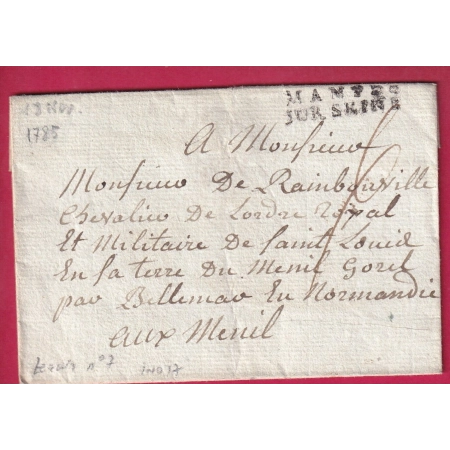 18 nov.
1785
MANTES
SUR SEINE
A Monsieur
Monsieur De Rainbouville
Chevalier De Lordre Royal
Et Militaire De Saint Louis
En sa terre Du Menil Gorel
par Bellemav En Normandie
aux Menil
Lenain n°7
IND 17